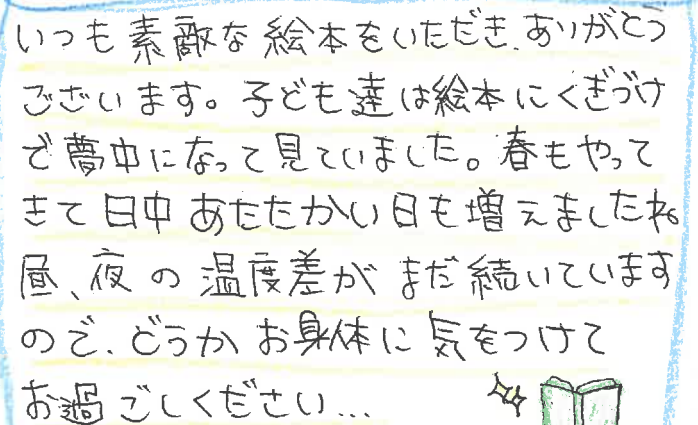 いつも素敵な絵本をいただき、ありがとう
ございます。子ども達は絵本にくぎづけ
で夢中になって見ていました。春もやって
きて日中あたたかい日も増えましたね。
昼、夜の温度差がまだ続いています
ので、どうかお身体に気をつけて
お過ごしください...